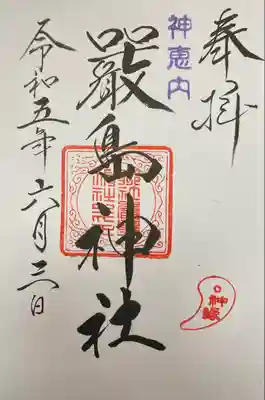 奉拝
神恵内
嚴島神社
令和五年六月三日
神縁